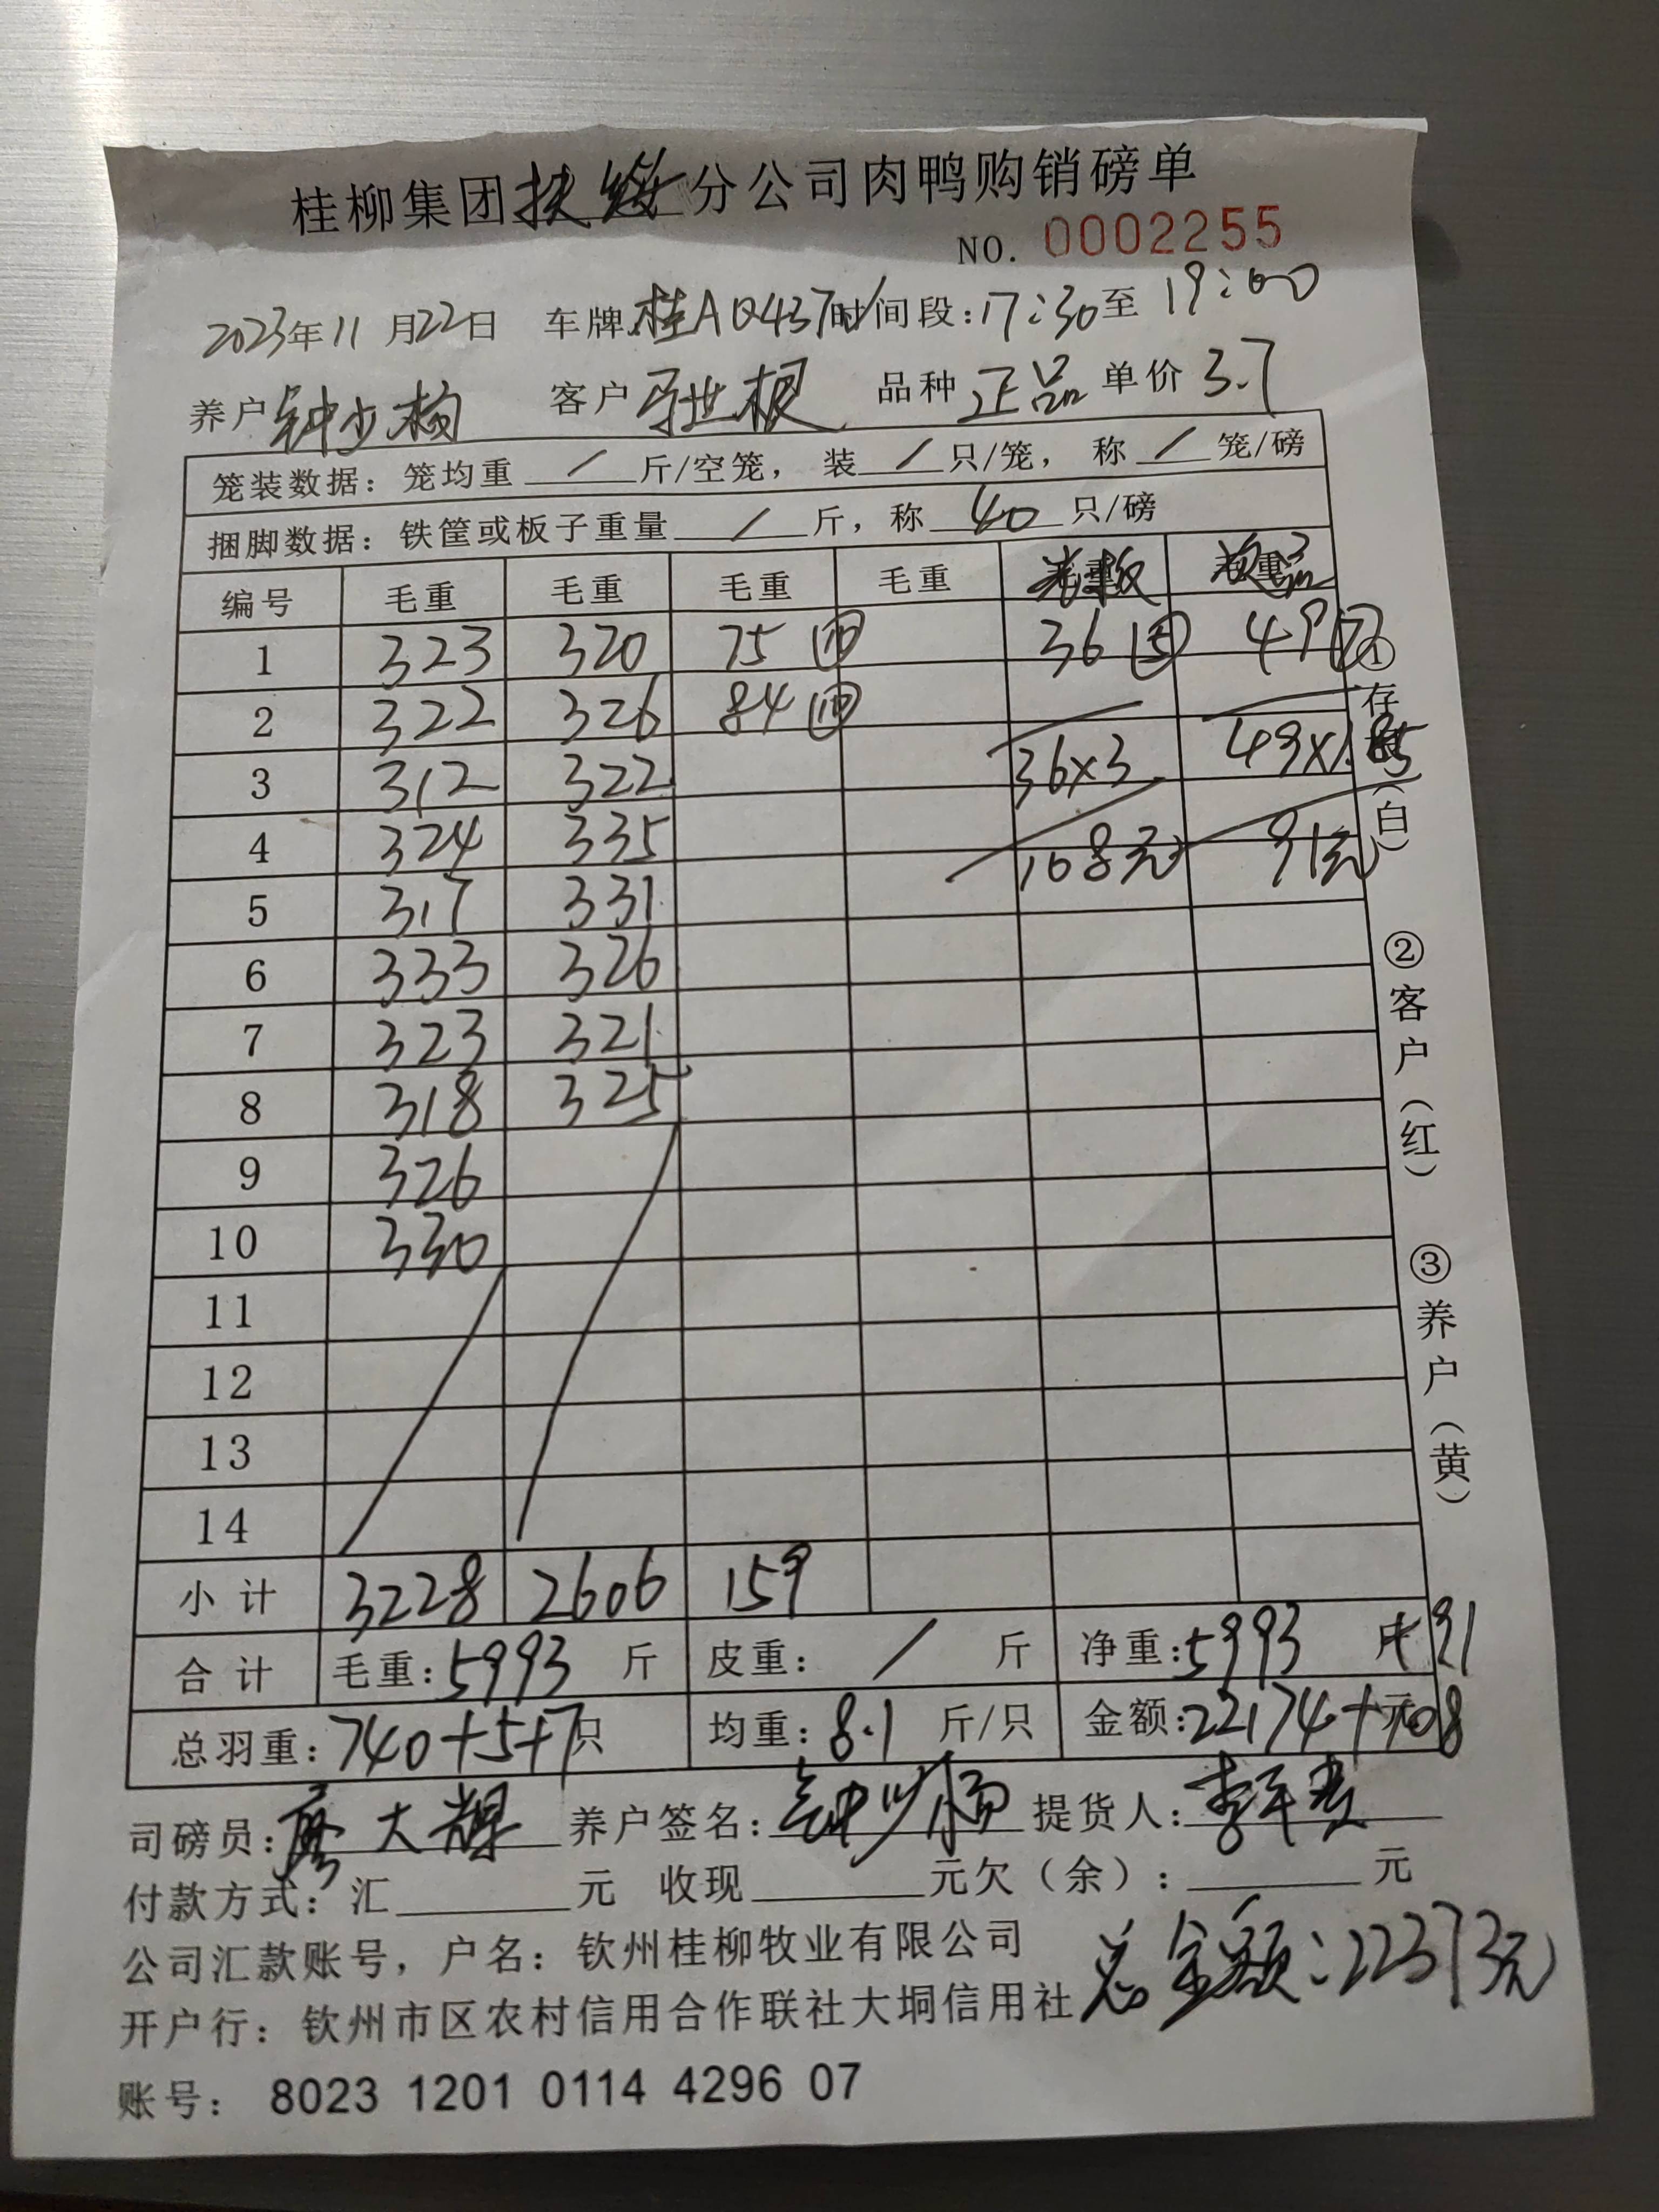 桂柳集团扶绥分公司肉鸭购销磅单
NO. 0002255
2023年11月22日 车牌:桂AQ437 时间段:17:30至19:00
养户 钟少杨 客户 根 品种 正品 单价 3.7
笼装数据:笼均重 / 斤/空笼, 装 / 只/笼, 称 / 笼/磅
捆脚数据:铁筐或板子重量 / 斤,称 40 只/磅
编号 毛重 毛重 毛重 毛重
1 323 320 75 ⑩ 36 ⑤ 49 ⑦
2 322 326 84 ⑩
3 312 322 36×3 49×1.85
4 324 335 108元 91元
5 317 331
6 333 326
7 323 321
8 318 325
9 326
10 330
11
12
13
14
小计 3228 2606 159
合计 毛重:5993 斤 皮重: / 斤 净重:5993 斤 +91
总羽重:740+5+7只 均重:8.1 斤/只 金额:22174+元108
司磅员:廖大辉 养户签名:钟少杨 提货人:李
付款方式:汇 元 收现 元欠(余): 元
公司汇款账号,户名:钦州桂柳牧业有限公司
开户行:钦州市区农村信用合作联社大垌信用社 总金额:22373元
账号: 8023 1201 0114 4296 07
①存(白) ②客户(红) ③养户(黄)